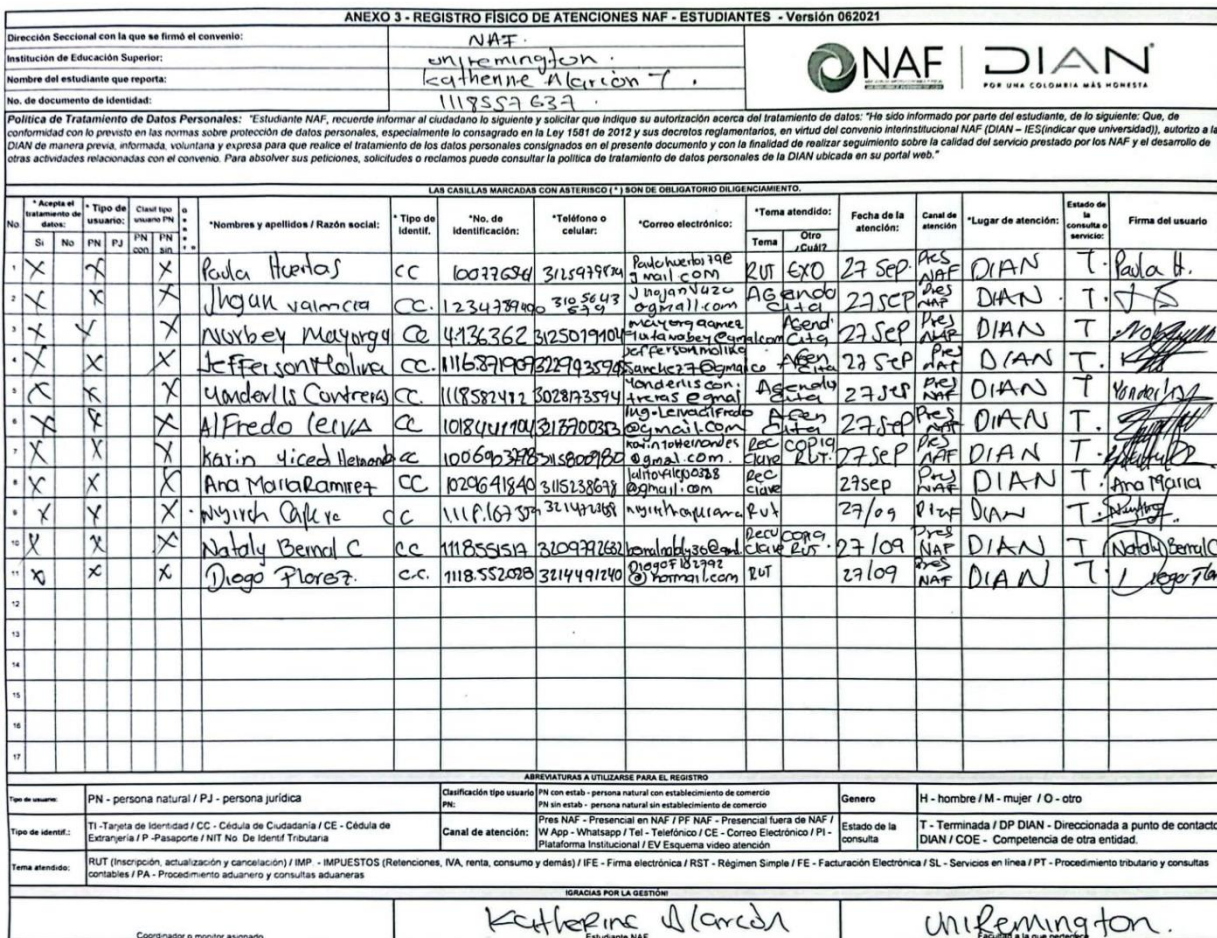 ANEXO 3 - REGISTRO FÍSICO DE ATENCIONES NAF - ESTUDIANTES - Versión 062021
Dirección Seccional con la que se firmó el convenio: NAF.
Institución de Educación Superior: uniremington.
Nombre del estudiante que reporta: Katherine Alarcón T.
No. de documento de identidad: 1118557637.
NAF DIAN
POR UNA COLOMBIA MÁS HONESTA
Política de Tratamiento de Datos Personales: "Estudiante NAF, recuerde informar al ciudadano lo siguiente y solicitar que indique su autorización acerca del tratamiento de datos: "He sido informado por parte del estudiante, de lo siguiente: Que, de
conformidad con lo previsto en las normas sobre protección de datos personales, especialmente lo consagrado en la Ley 1581 de 2012 y sus decretos reglamentarios, en virtud del convenio interinstitucional NAF (DIAN – IES(indicar que universidad)), autorizo a la
DIAN de manera previa, informada, voluntaria y expresa para que realice el tratamiento de los datos personales consignados en el presente documento y con la finalidad de realizar seguimiento sobre la calidad del servicio prestado por los NAF y el desarrollo de
otras actividades relacionadas con el convenio. Para absolver sus peticiones, solicitudes o reclamos puede consultar la política de tratamiento de datos personales de la DIAN ubicada en su portal web."
LAS CASILLAS MARCADAS CON ASTERISCO ( * ) SON DE OBLIGATORIO DILIGENCIAMIENTO.
No * Acepta el tratamiento de datos: Si No * Tipo de usuario: PN PJ Clasif tipo usuario PN PN con PN sin *Nombres y apellidos / Razón social: * Tipo de identif. *No. de identificación: *Teléfono o celular: *Correo electrónico: *Tema atendido: Tema Otro ¿Cuál? Fecha de la atención: Canal de atención *Lugar de atención: Estado de la consulta o servicio: Firma del usuario
1 X X X Paula Huertas CC gmail.com RUT EXO 27 Sep. Pres NAF DIAN T. Paula H.
2 X X X Jhoan Valencia CC. @gmail.com Agendo Cita 27 sep Pres NAF DIAN T.
3 X X X Norbey Mayorga CC 4.136.362 3125019104 Agend Cita 27 sep Pres NAF DIAN T.
4 X X X Jefferson Molina CC. Agen Cita 27 sep Pres NAF DIAN T.
5 X X X Yonderlis Contreras CC. 1118582482 3028173594 Yonderliscontreras @gmail Agendu Cita 27 sep Pres NAF DIAN T
6 X X X Alfredo Leiva CC @gmail.com Agen Cita 27 sep Pres NAF DIAN T.
7 X X X Karin Yiced CC @gmail.com. Rec Clave copia RUT. 27 sep Pres NAF DIAN T
8 X X X Ana Maria Ramirez CC 1029641840 3115238678 @gmail.com Rec clave 27sep Pres NAF DIAN T. Ana Maria
9 X X X CC Rut 27/09 DIAN T.
10 X X X Nataly Bernal C CC 1118551517 3209792632 Recu clave copia RUT. 27/09 Pres NAF DIAN T Nataly Bernal C
11 X X X Diego Florez. C.C. 1118.552028 3214491240 @hotmail.com RUT 27/09 Pres NAF DIAN T.
12
13
14
15
16
17
ABREVIATURAS A UTILIZARSE PARA EL REGISTRO
Tipo de usuario: PN - persona natural / PJ - persona jurídica Clasificación tipo usuario PN: PN con estab - persona natural con establecimiento de comercio
PN sin estab - persona natural sin establecimiento de comercio Genero H - hombre / M - mujer / O - otro
Tipo de identif.: TI -Tarjeta de Identidad / CC - Cédula de Ciudadanía / CE - Cédula de Extranjería / P -Pasaporte / NIT No. De Identif Tributaria Canal de atención: Pres NAF - Presencial en NAF / PF NAF - Presencial fuera de NAF / W App - Whatsapp / Tel - Telefónico / CE - Correo Electrónico / PI - Plataforma Institucional / EV Esquema video atención Estado de la consulta T - Terminada / DP DIAN - Direccionada a punto de contacto DIAN / COE - Competencia de otra entidad.
Tema atendido: RUT (Inscripción, actualización y cancelación) / IMP. - IMPUESTOS (Retenciones, IVA, renta, consumo y demás) / IFE - Firma electrónica / RST - Régimen Simple / FE - Facturación Electrónica / SL - Servicios en línea / PT - Procedimiento tributario y consultas
contables / PA - Procedimiento aduanero y consultas aduaneras
!GRACIAS POR LA GESTIÓN!
Katherine Alarcón uniRemington.
Coordinador o monitor asignado Estudiante NAF Facultad a la que pertenece